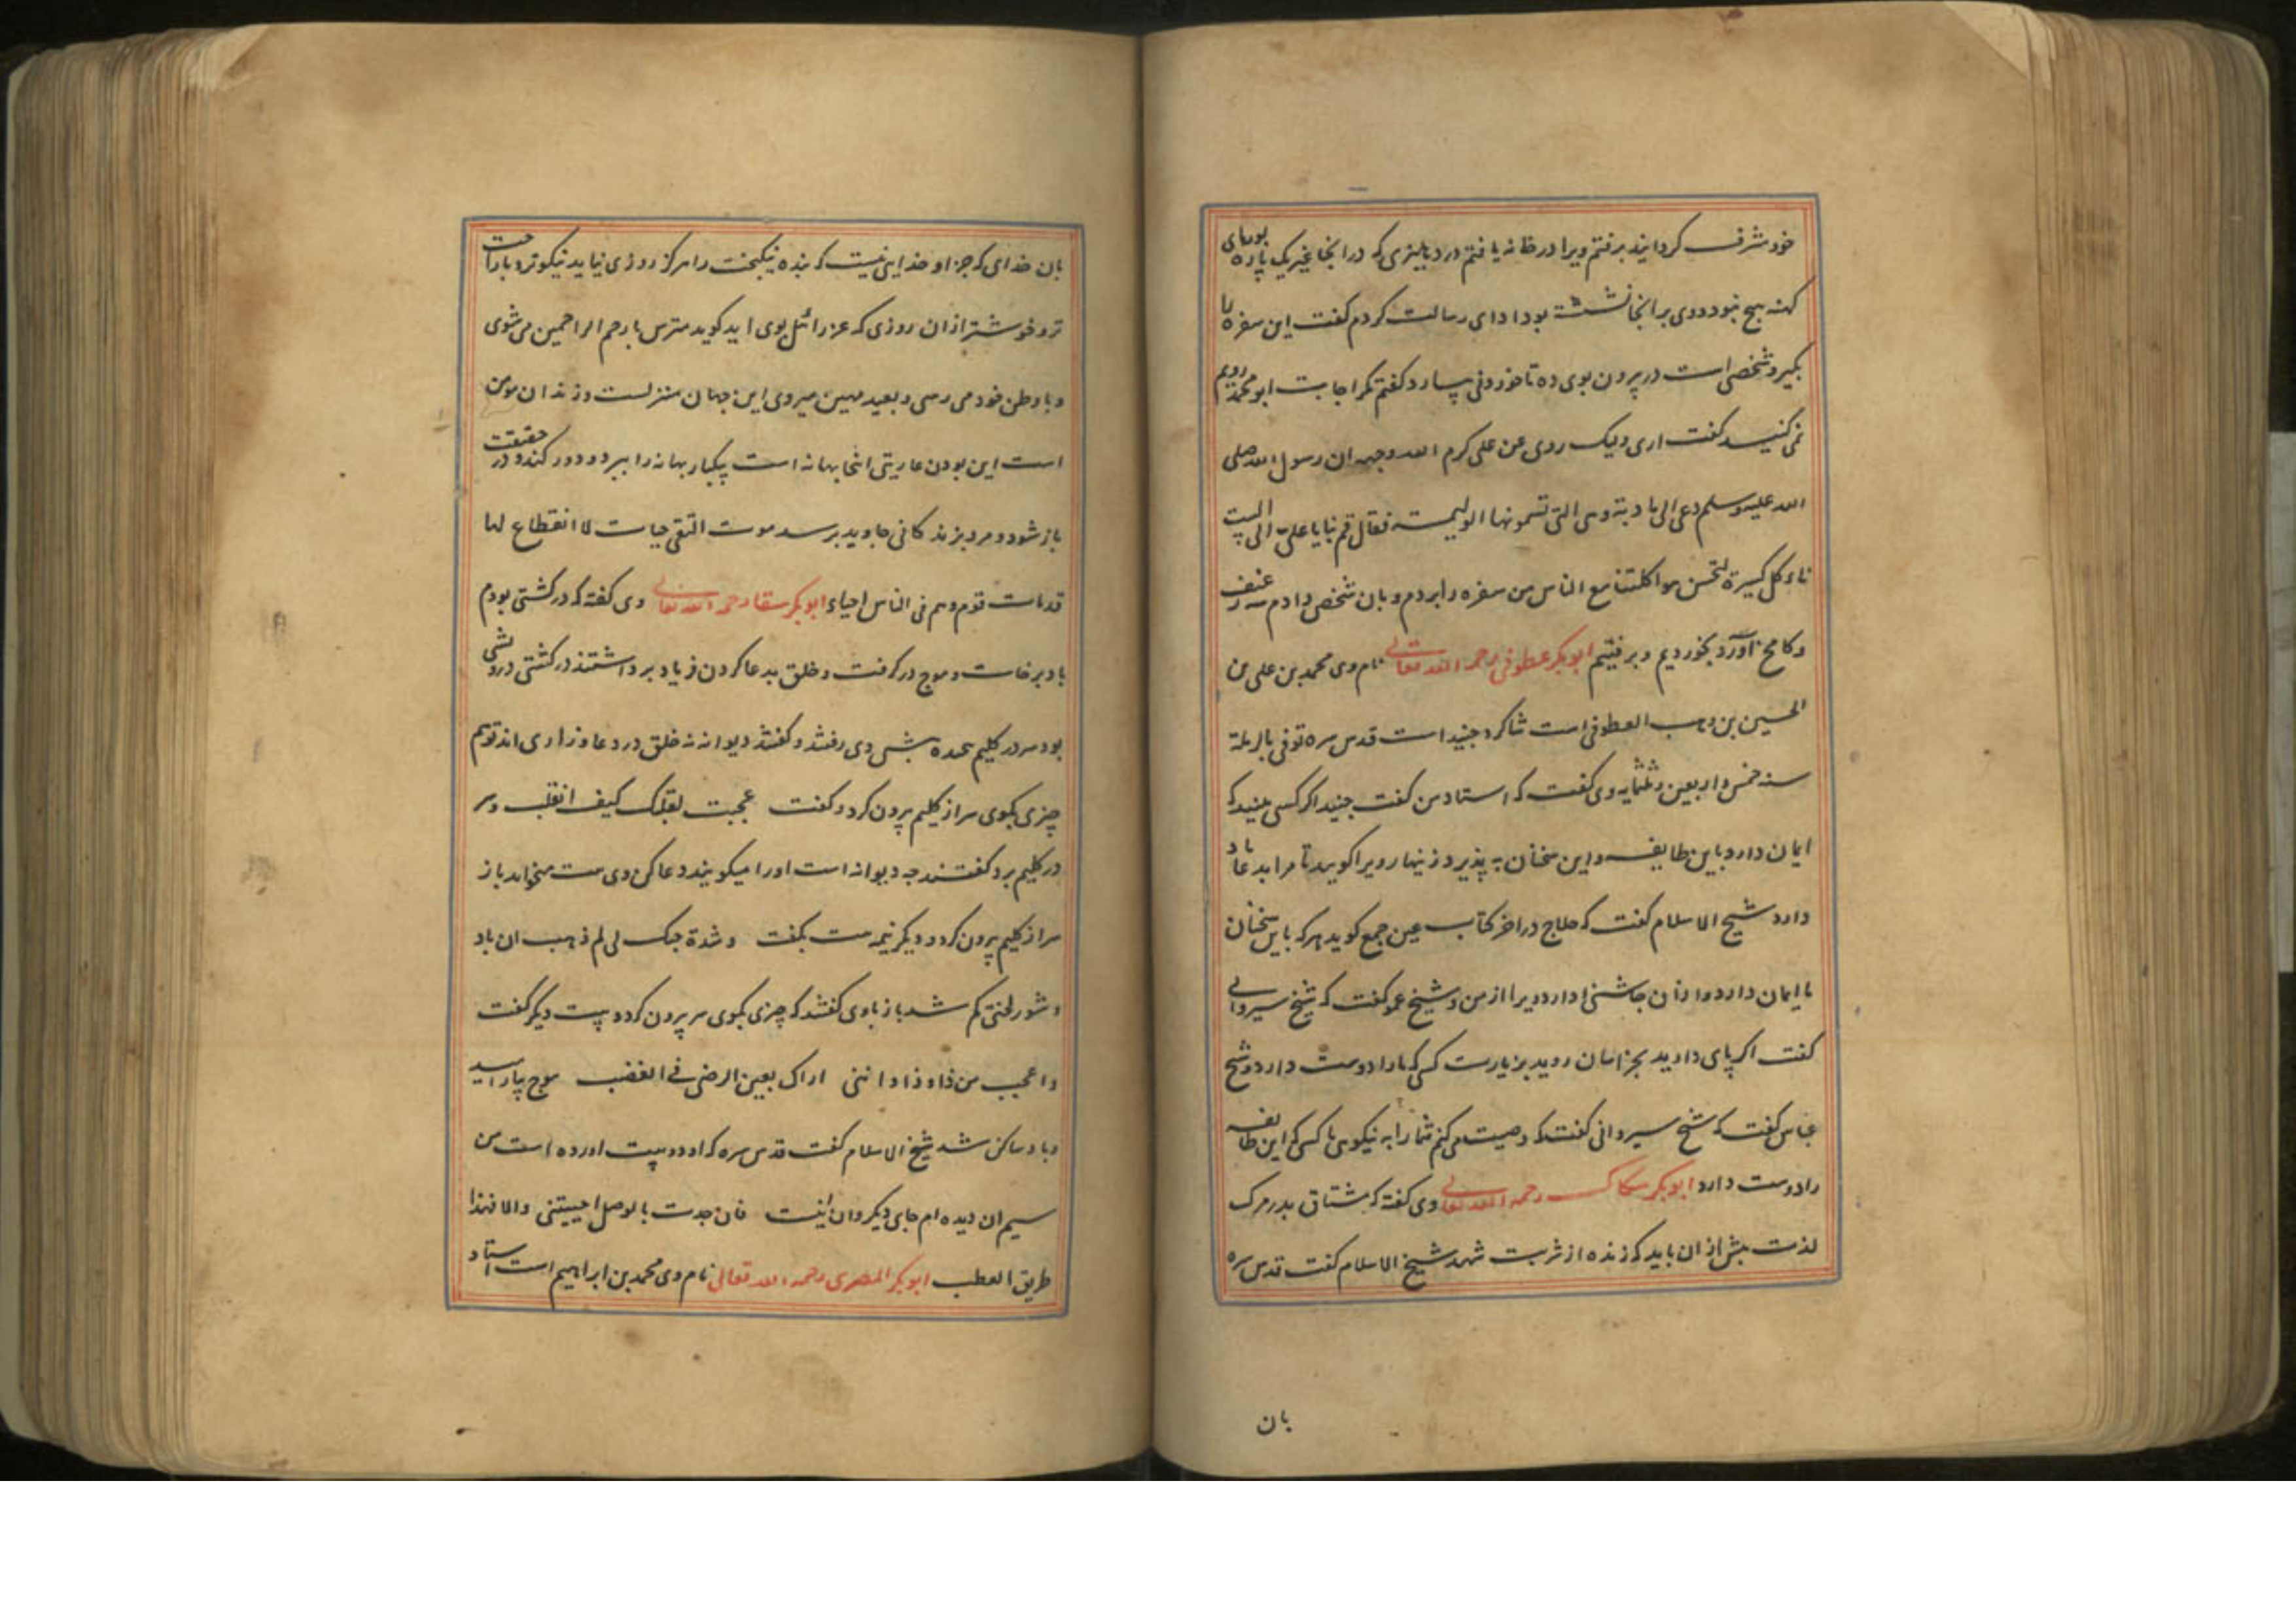 خود مشرف کرداند برفتم ویرا در خانه یافتم در دهلیزی که در انجا غیر یک پاره بوریای
کهنه هیچ نبود و وی بر انجا نشسته بود ادای رسالت کردم کفت این سفره را
بکیر و شخصی است در بیرون بوی ده تا خوردنی بیارد کفتم مکر اجابت ابو محمد رویم
نمی کنید کفت اری ولیک روی عن علی کرم الله وجهه ان رسول الله صلی
الله علیه وسلم دعی الی مادبة وهی التی تسمونها الولیمه فقال قم بنا یا علی الی البیت
ناءکل کسیرة لتحسن مواکلتنا مع الناس من سفره را بردم و بان شخص دادم سه رغیف
و کامخ آورد بخوردیم و برفتیم ابوبکر عطوفی رحمه الله تعالی نام وی محمد بن علی بن
الحسین بن وهب العطوفی است شاکرد جنید است قدس سره توفی بالرملة
سنه خمس و اربعین و ثلثمایه وی کفت که استاد من کفت جنید اکر کسی بینید که
ایمان دارد باین طایفه و این سخنان به پذیرد زینهار ویرا کویید تا مرا بدعا یاد
دارد شیخ الاسلام کفت که حلاج در اخر کتاب عین جمع کوید هر که باین سخنان
ما ایمان دارد و از ان چاشنی دارد ویرا از من و شیخ عمو کفت که شیخ سیروانی
کفت اکر پای دارید بخراسان روید بزیارت کسی که ما را دوست دارد و شیخ
عباس کفت که شیخ سیروانی کفت که وصیت می کنم شما را به نیکویی با کسی که این طایفه
را دوست دارد ابوبکر سکاک رحمه الله تعالی وی کفته که مشتاق بدر مرک
لذت بیش از ان یابد که زنده از شربت شهد شیخ الاسلام کفت قدس سره
بان
بان خدای که جز او خدایی نیست که بنده نیکبخت را هرکز روزی نیاید نیکوتر و با راحت
تر و خوشتر از ان روزی که عزرائیل بوی اید کوید مترس بارحم الراحمین می شوی
و با وطن خود می رسی و بعید مهین میروی این جهان منزلست و زندان مومن
است این بودن عاریتی انجا بهانه است یکبار بهانه را ببرد و دور کند و در حقیقت
باز شود و مرد بزندکانی جاوید برسد موت التقی حیات لا انقطاع لها
قد مات قوم وهم فی الناس احیاء ابوبکر سقا رحمه الله تعالی وی کفته که در کشتی بودم
باد برخاست و موج در کرفت و خلق بدعا کردن فریاد برداشتند در کشتی درویشی
بود سر در کلیم شده پیش وی رفتند و کفتند دیوانه نه خلق در دعا و زاری اند تو هم
چیزی بکوی سر از کلیم بیرون کرد و کفت عجبت لقلبک کیف انقلب و سر
در کلیم برد کفتند چه دیوانه است او را میکویند دعا کن وی بیت میخواند باز
سر از کلیم بیرون کرد و دیکر نیمه بیت بکفت و شدة حبک لی لم ذهب ان باد
و شور لختی کم شد باز باوی کفتند که چیزی بکوی سر بیرون کرد و بیت دیکر کفت
واعجب من ذا وذا اننی اراک بعین الرضی فی الغضب موج بیارامید
و باد ساکن شد شیخ الاسلام کفت قدس سره که او دو بیت اورده است من
سیم ان دیده ام جای دیکر وان اینست فان جدت بالوصل احییتنی والا فهذا
طریق العطب ابوبکر المصری رحمه الله تعالی نام وی محمد بن ابراهیم است استاد